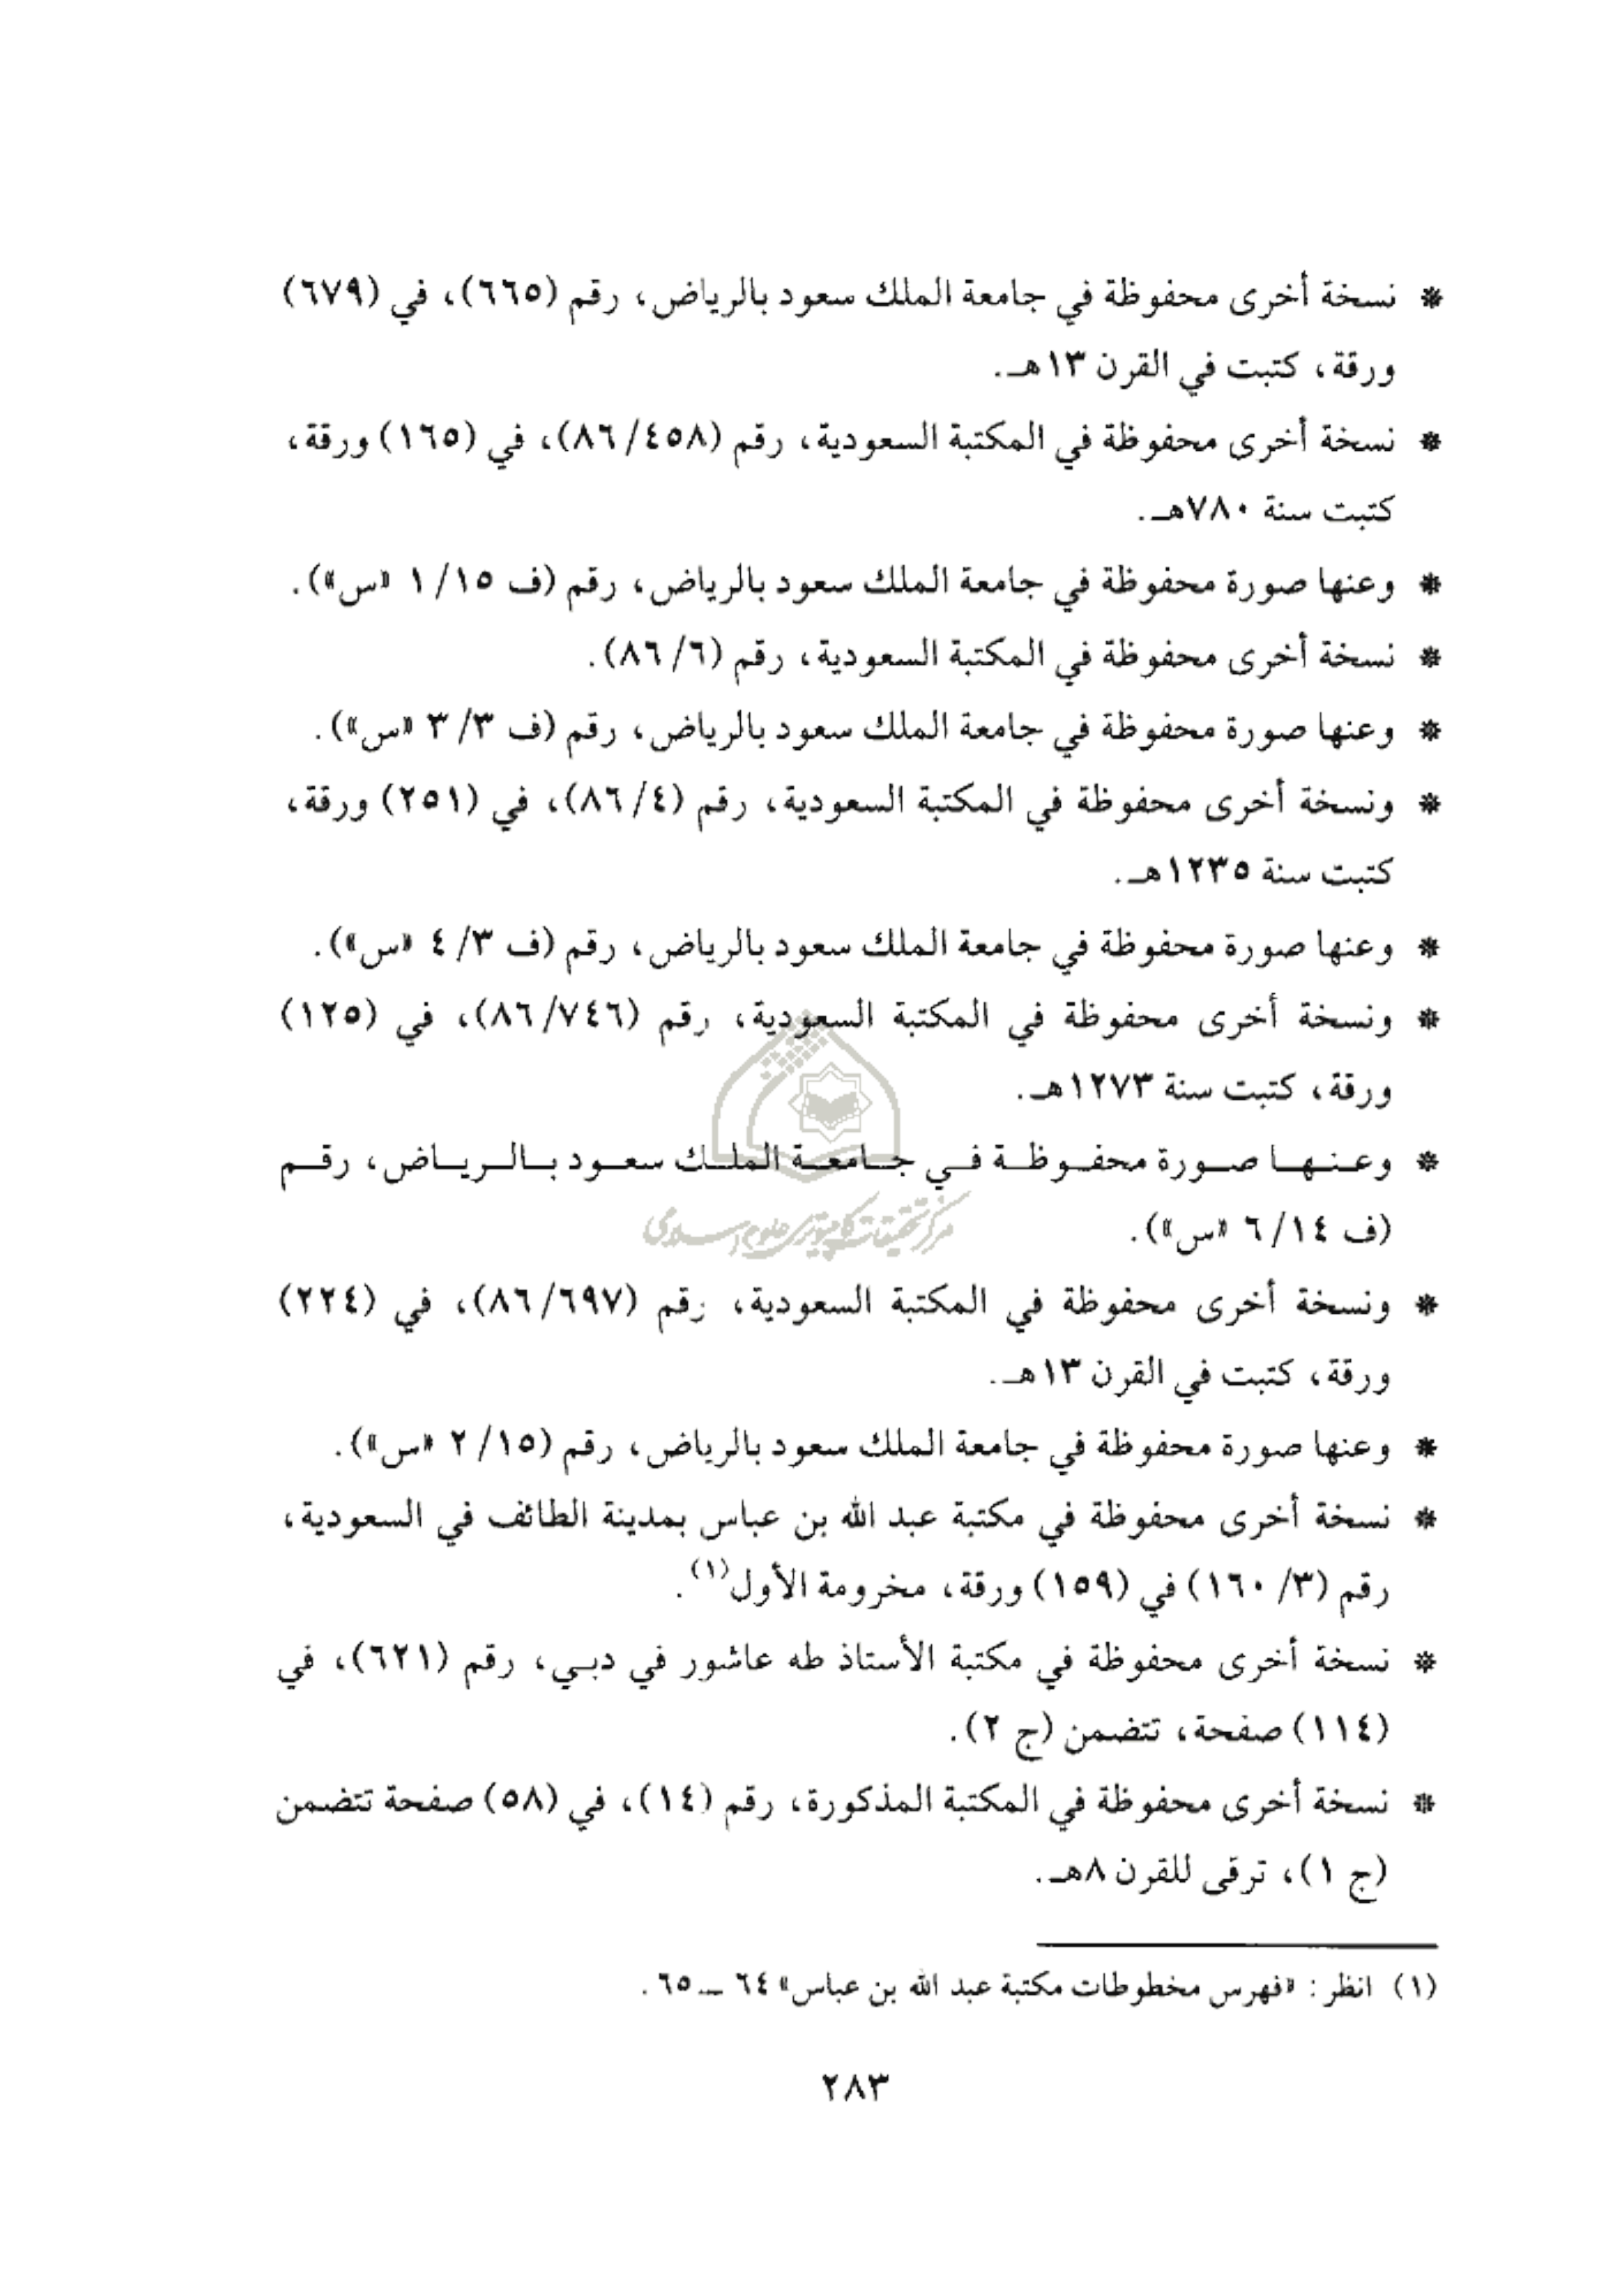 * نسخة أخرى محفوظة في جامعة الملك سعود بالرياض، رقم (٦٦٥)، في (٦٧٩)
ورقة، كتبت في القرن ١٣هـ.
* نسخة أخرى محفوظة في المكتبة السعودية، رقم (٨٦/٤٥٨)، في (١٦٥) ورقة،
كتبت سنة ٧٨٠هـ.
* وعنها صورة محفوظة في جامعة الملك سعود بالرياض، رقم (ف ١٥/ ١ «س»).
* نسخة أخرى محفوظة في المكتبة السعودية، رقم (٨٦/٦).
* وعنها صورة محفوظة في جامعة الملك سعود بالرياض، رقم (ف ٣/ ٣ «س»).
* ونسخة أخرى محفوظة في المكتبة السعودية، رقم (٨٦/٤)، في (٢٥١) ورقة،
كتبت سنة ١٢٣٥هـ.
* وعنها صورة محفوظة في جامعة الملك سعود بالرياض، رقم (ف ٣/ ٤ «س»).
* ونسخة أخرى محفوظة في المكتبة السعودية، رقم (٨٦/٧٤٦)، في (١٢٥)
ورقة، كتبت سنة ١٢٧٣هـ.
* وعنها صورة محفوظة في جامعة الملك سعود بالرياض، رقم
(ف ١٤/ ٦ «س»).
مركز تحقيقات كامپيوتری علوم اسلامی
* ونسخة أخرى محفوظة في المكتبة السعودية، رقم (٨٦/٦٩٧)، في (٢٢٤)
ورقة، كتبت في القرن ١٣هـ.
* وعنها صورة محفوظة في جامعة الملك سعود بالرياض، رقم (١٥/ ٢ «س»).
* نسخة أخرى محفوظة في مكتبة عبد الله بن عباس بمدينة الطائف في السعودية،
رقم (٣/ ١٦٠) في (١٥٩) ورقة، مخرومة الأول(١).
* نسخة أخرى محفوظة في مكتبة الأستاذ طه عاشور في دبي، رقم (٦٢١)، في
(١١٤) صفحة، تتضمن (ج ٢).
* نسخة أخرى محفوظة في المكتبة المذكورة، رقم (١٤)، في (٥٨) صفحة تتضمن
(ج ١)، ترقى للقرن ٨هـ.
(١) انظر: «فهرس مخطوطات مكتبة عبد الله بن عباس» ٦٤ ـ ٦٥.
٢٨٣